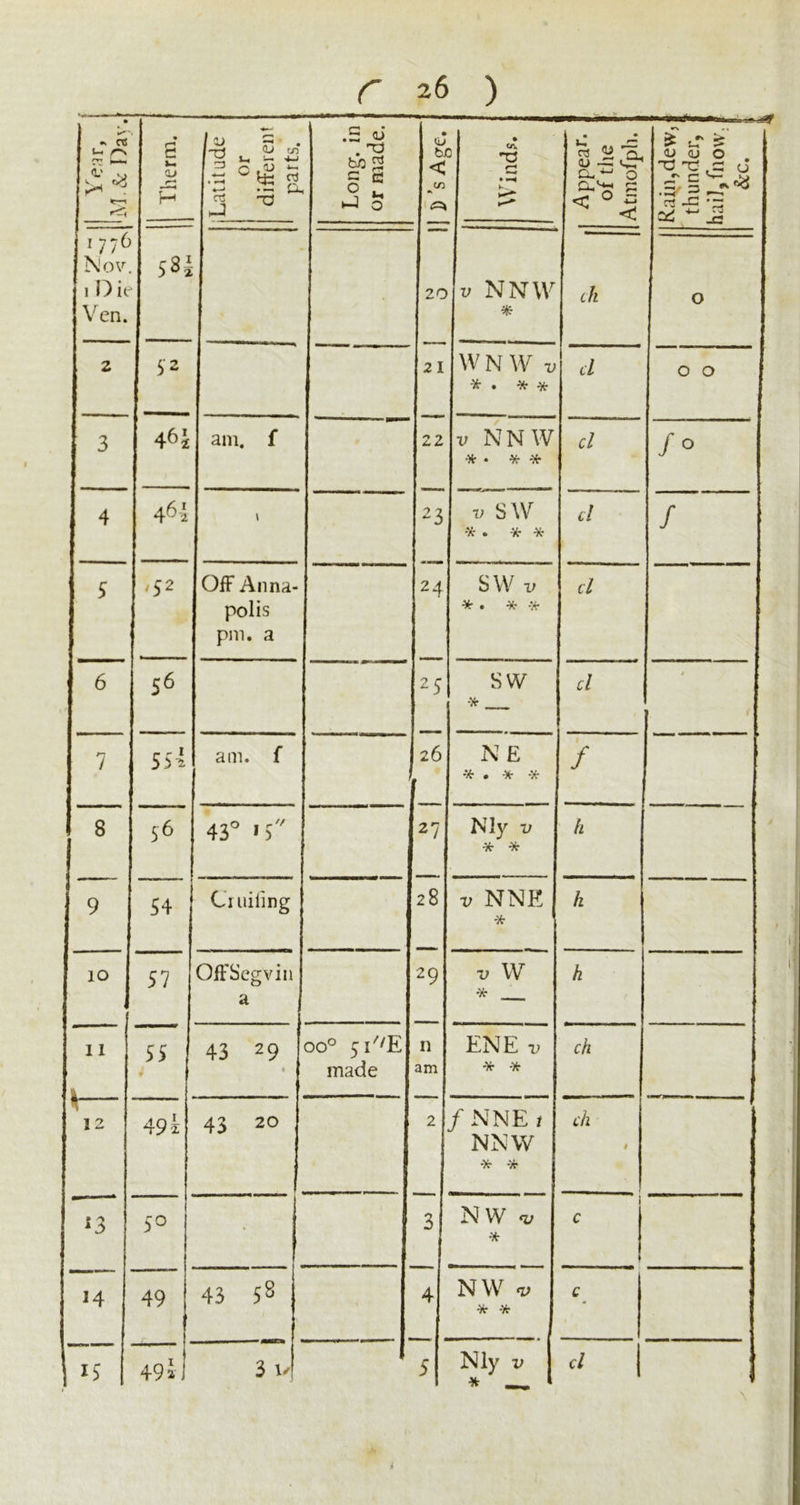 ( 26 )
Year, M & Day. | Therm. | Latitude or different parts. | Long. in or made. | D's Age. | Winds. | Appear. of the Atmosph. | Rain, dew, thunder, hail, snow, &c.
1776 Nov. 1 Die Ven. | 58½ | | | 20 | v NNW * | ch | o
2 | 52 | | | 21 | WNW v * . * * | cl | o o
3 | 46½ | am. f | | 22 | v NNW * . * * | cl | ſ o
4 | 46½ | | | 23 | v SW * . * * | cl | ſ
5 | 52 | Off Annapolis pm. a | | 24 | SW v * . * * | cl |
6 | 56 | | | 25 | SW * __ | cl |
7 | 55½ | am. f | | 26 | NE * . * * | f |
8 | 56 | 43° 15″ | | 27 | Nly v * * | h |
9 | 54 | Cruiſing | | 28 | v NNE * | h |
10 | 57 | Off Segvin a | | 29 | v W * __ | h |
11 | 55 | 43 29 | 00° 51″E made | n am | ENE v * * | ch |
12 | 49½ | 43 20 | | 2 | ſ NNE t NNW * * | ch |
13 | 50 | | | 3 | NW v * | c |
14 | 49 | 43 58 | | 4 | NW v * * | c |
15 | 49½ | 3 v | | 5 | Nly v * __ | cl |